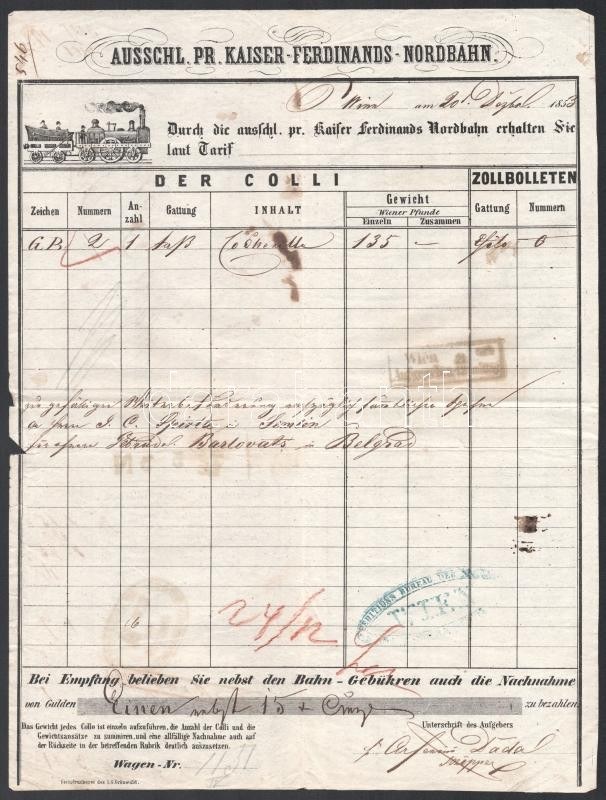 946
AUSSCHL. PR. KAISER-FERDINANDS-NORDBAHN.
Wien am 20 1853
Durch die ausschl. pr. Kaiser Ferdinands Nordbahn erhalten Sie
laut Tarif
DER COLLI ZOLLBOLLETEN
Zeichen Nummern An-zahl Gattung INHALT Gewicht Gattung Nummern
Wiener Pfunde
Einzeln Zusammen
G.B. 2 1 Faß Cochenille 135 —
a Herrn J. C. in Semlin
Barlovatz in Belgrad
6
EXPEDITIONS BUREAU DER
WIEN
24/12
Bei Empfang belieben Sie nebst den Bahn-Gebühren auch die Nachnahme
von Gulden Einen nebst 15 x zu bezahlen
Das Gewicht jedes Collo ist einzeln aufzuführen, die Anzahl der Colli und die
Gewichtsansätze zu summiren, und eine allfällige Nachnahme auch auf
der Rückseite in der betreffenden Rubrik deutlich auszusetzen.
Unterschrift des Aufgebers
Wagen-Nr.